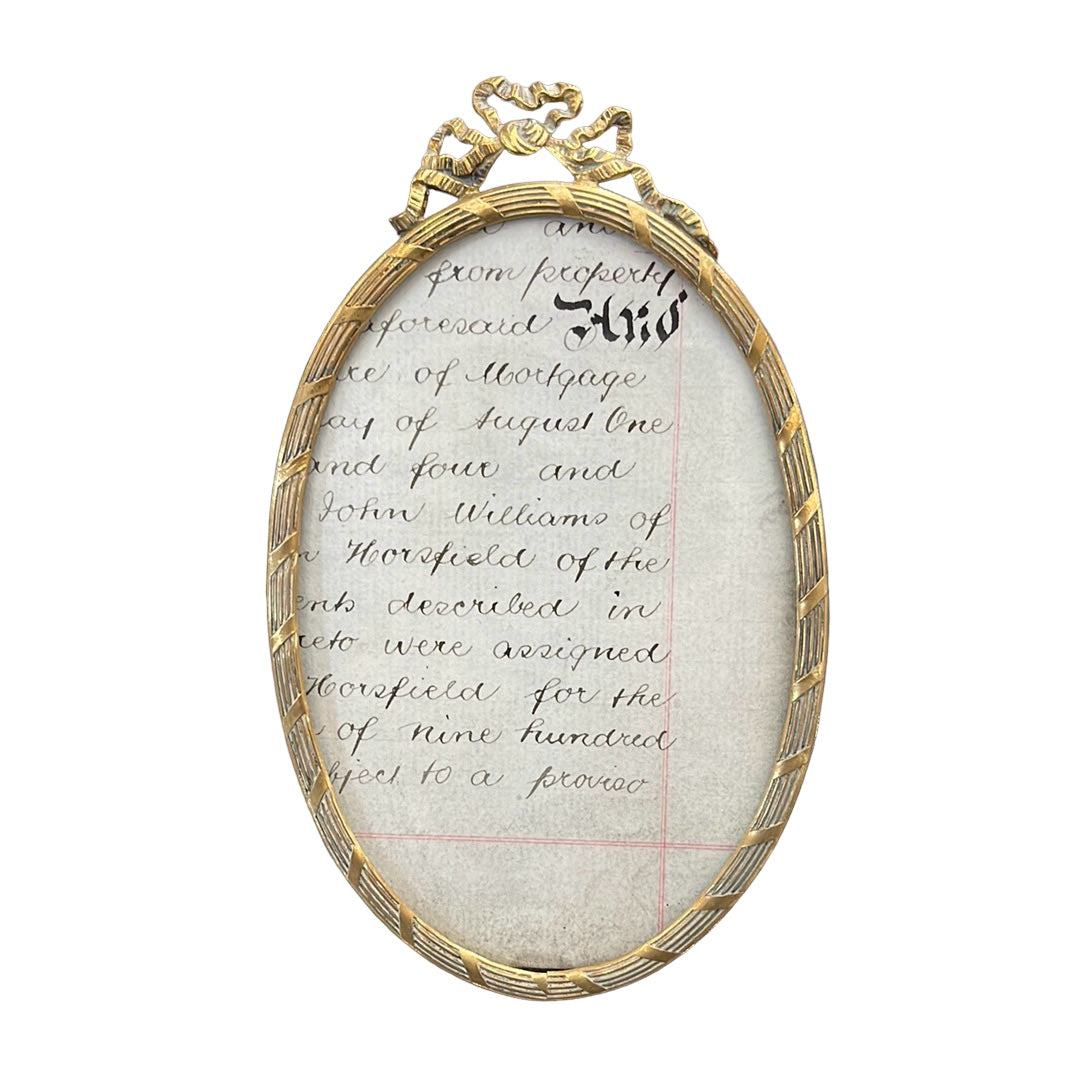 and
from property
aforesaid And
of Mortgage
of August One
and four and
John Williams of
Horsfield of the
described in
were assigned
Horsfield for the
of nine hundred
to a proviso